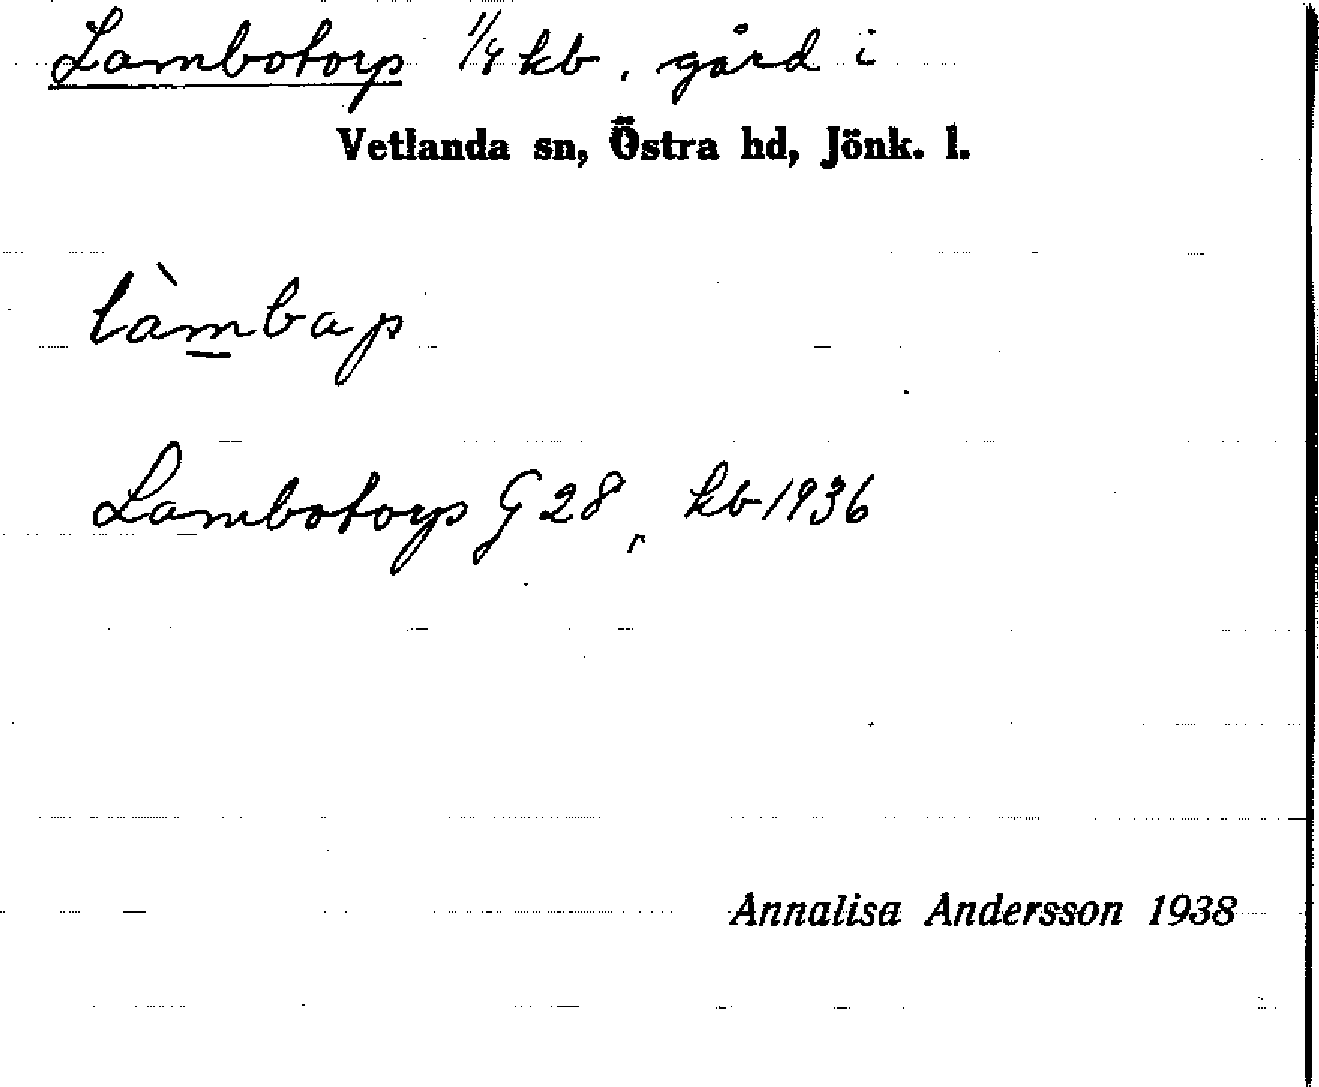 Lambotorp 1/4 kb, gård i
Vetlanda sn, Östra hd, Jönk. l.
làmbap
Lambotorp G 28, kb 1936
Annalisa Andersson 1938